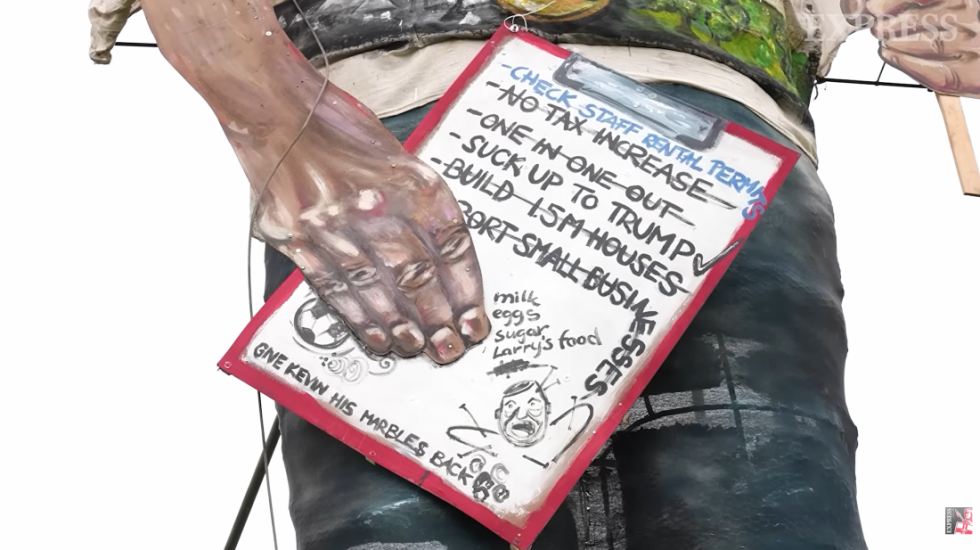 EXPRESS
-CHECK STAFF RENTAL PERMITS
-NO TAX INCREASE
-ONE IN ONE OUT
-SUCK UP TO TRUMP ✓
-BUILD 1.5M HOUSES
PORT SMALL BUSINESSES
milk
eggs
sugar
Larry's food
GIVE KEVIN HIS MARBLES BACK
EXPRESS